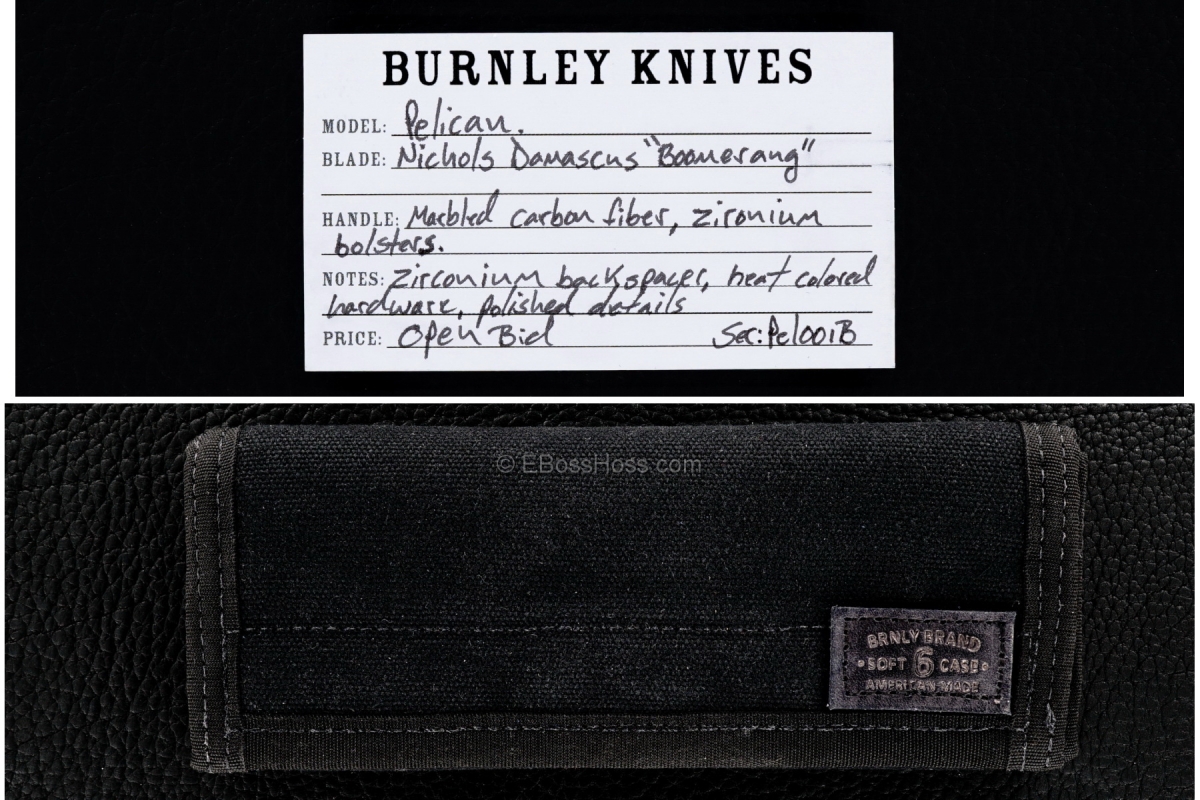 BURNLEY KNIVES
MODEL: Pelican.
BLADE: Nichols Damascus "Boomerang"
HANDLE: Marbled carbon fiber, zironium
bolsters.
NOTES: Zirconium backspacer, heat colored
hardware, polished details
PRICE: Open Bid Ser: Pel001B
© EBossHoss.com
BRNLY BRAND
•SOFT 6 CASE•
AMERICAN MADE